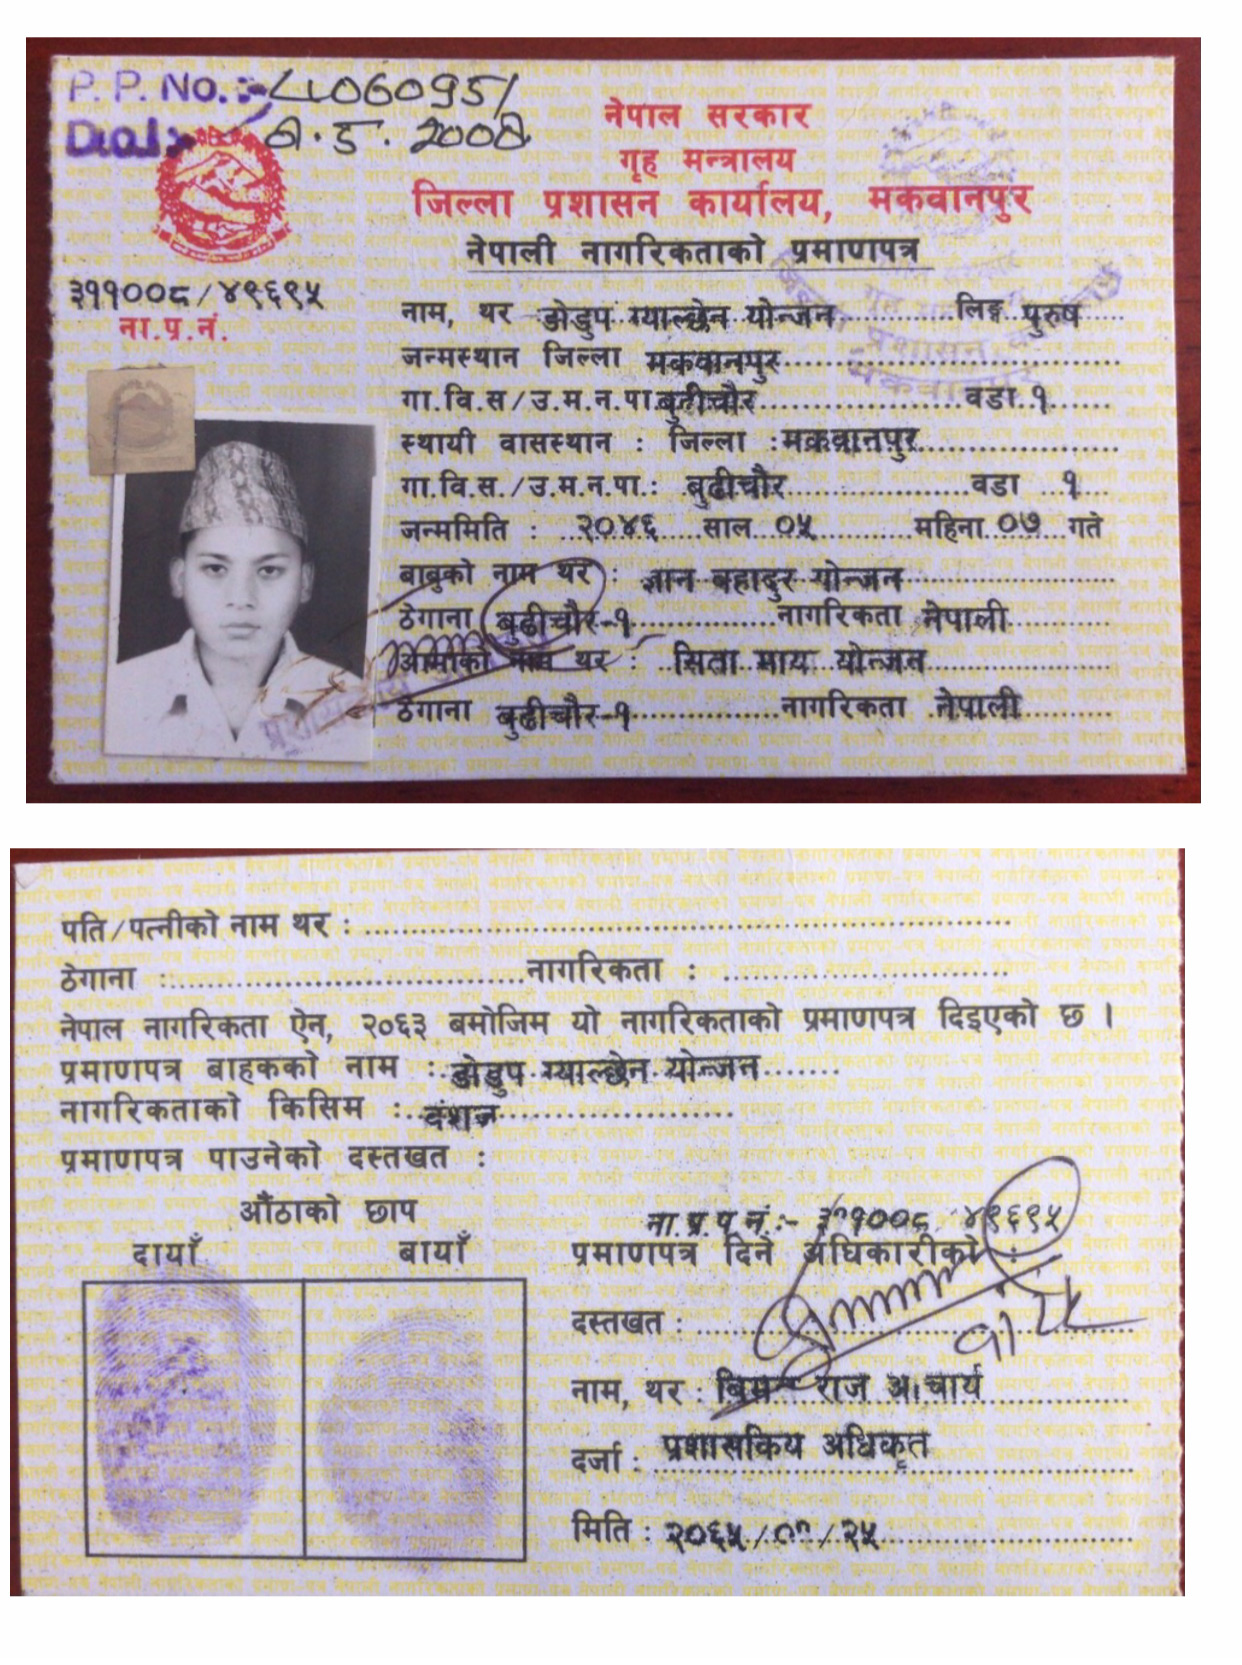 P. P. No. :- 4106095/
D.O.I :- 9.5.2008
नेपाल सरकार
गृह मन्त्रालय
जिल्ला प्रशासन कार्यालय, मकवानपुर
नेपाली नागरिकताको प्रमाणपत्र
३११००८/४९६९५
ना.प्र.नं.
नाम, थर डोडुप ग्याल्छेन योन्जन लिङ्ग पुरुष
जन्मस्थान जिल्ला मकवानपुर
गा.वि.स/उ.म.न.पा. बुढीचौर वडा १
स्थायी वासस्थान : जिल्ला : मकवानपुर
गा.वि.स./उ.म.न.पा.: बुढीचौर वडा १
जन्ममिति : २०४६ साल ०५ महिना ०७ गते
बाबुको नाम थर : ज्ञान बहादुर योन्जन
ठेगाना बुढीचौर-१ नागरिकता नेपाली
आमाको नाम थर : सिता माय योन्जन
ठेगाना बुढीचौर-१ नागरिकता नेपाली
पति/पत्नीको नाम थर :
ठेगाना : नागरिकता :
नेपाल नागरिकता ऐन, २०६३ बमोजिम यो नागरिकताको प्रमाणपत्र दिइएको छ ।
प्रमाणपत्र बाहकको नाम : डोडुप ग्याल्छेन योन्जन
नागरिकताको किसिम : वंशज
प्रमाणपत्र पाउनेको दस्तखत :
औंठाको छाप
दायाँ बायाँ
ना.प्र.प.नं.:- ३११००८/४९६९५
प्रमाणपत्र दिने अधिकारीको :
दस्तखत :
नाम, थर : राज आचार्य
दर्जा : प्रशासकिय अधिकृत
मिति : २०६५/०१/२५